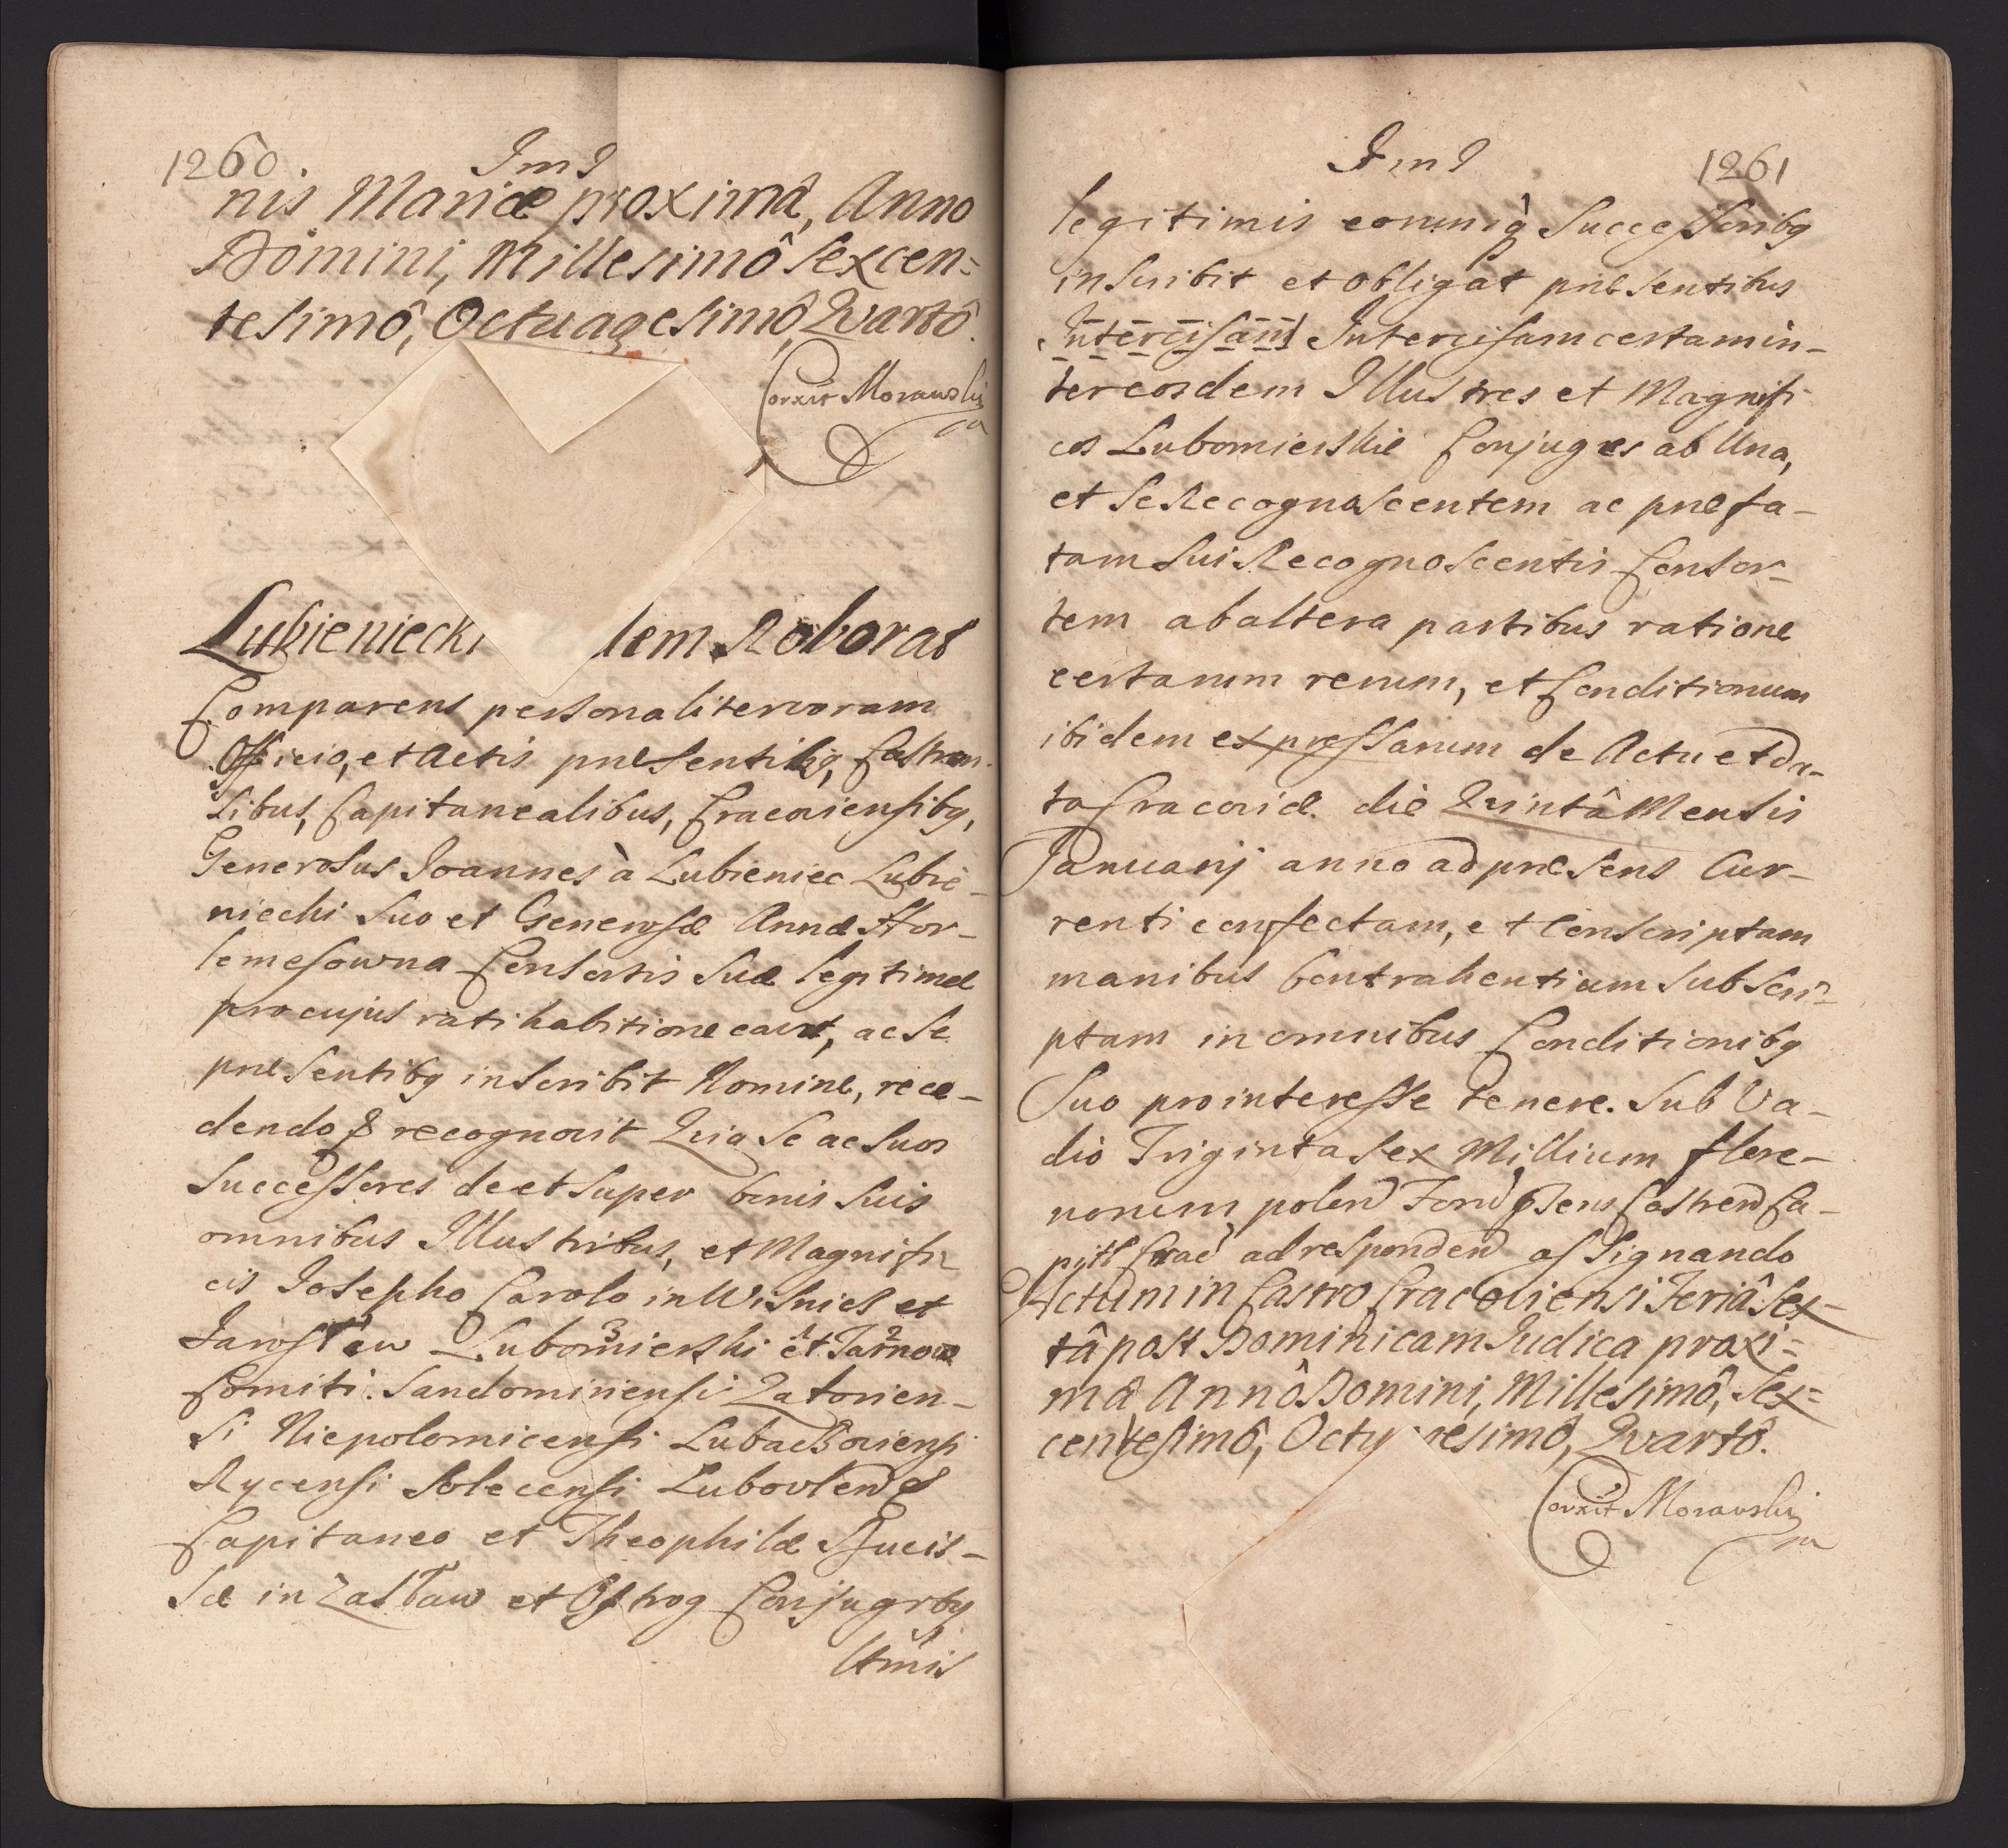 1260.
nis Mariæ proximâ, Anno
Domini, Millesimô Sexcen=
tesimô, Octuagesimô, Quartô.
Corxit Morawski
Lubieniecki dem Roborat
Comparens personaliter coram
Officio, et Actis præsentibq, Castren-
sibus, Capitanealibus, Cracoviensibq,
Generosus Joannes à Lubieniec Lubie-
niecki Suo et Generosæ Annæ Stor-
lemesowna Consortis Suæ legitimæ
pro cujus ratihabitione cavet, ac Se
præsentibq inscribit Nomine, rece-
dendo & recognovit Quia Se ac Suos
Successores de et super bonis Suis
omnibus Illustribus, et Magnifi-
cis Josepho Carolo in Wisnicz et
Jarosław Lubomierski et Tarnow
3 1 2
Comiti. Sandomiriensi Zatorien-
si Niepolomicensi Lubaczoviensi
Rycensi Solecensi Lubovlen &
Capitaneo et Theophilæ Ducis-
sæ in Zasław et Ostrog Conjugibq
1261
legitimis eorumq Successoribq
inscribit et obligat præsentibus
Intercisam Intercisam certam in-
ter eosdem Illustres et Magnifi-
cos Lubomierskie Conjuges ab Una,
et Se Recognoscentem ac præfa-
tam Sui Recognoscentis Consor-
tem ab altera partibus ratione
certarum rerum, et Conditionum
ibidem expressarum de Actu et Da-
ta Cracoviæ die Quintâ Mensis
Januarij anno ad præsens Cur-
renti confectam, et Conscriptam
manibus Contrahentium Subscri-
ptam in omnibus Conditionibq
Suo pro interesse tenere. Sub Va-
dio Triginta Sex Millium flore-
norum polon Foru psens Castren Ca-
pitl Crac ad responden assignando
Actum in Castro Cracoviensi Feriâ Sex-
tâ post Dominicam Judica proxi=
mâ Annô Domini, Millesimô, Sex=
centesimô, Octu esimô, Quartô.
Corxit Morawski